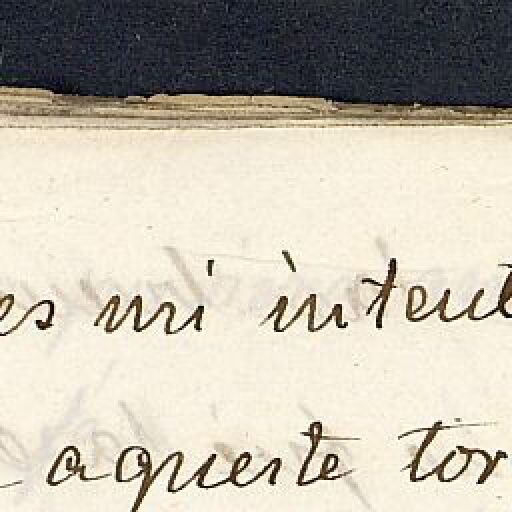 es mi intent
aqueste tor